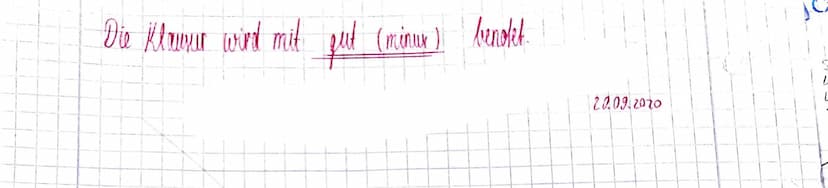 Die Klausur wird mit gut (minus) benotet.
29.09.2020